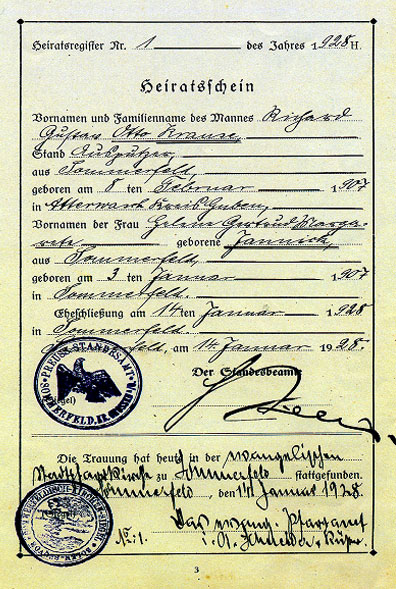 Heiratsregister Nr. 1 des Jahres 1928 H.
Heiratsschein
Vornamen und Familienname des Mannes Richard
Gustav Otto Krause,
Stand Ausputzer,
aus Sommerfeld,
geboren am 8 ten Februar 1907
in Atterwasch Kreis Guben,
Vornamen der Frau Helene Gertrud Marga-
rete geborene Jannich,
aus Sommerfeld,
geboren am 3 ten Januar 1907
in Sommerfeld.
Eheschließung am 14ten Januar 1928
in Sommerfeld.
Sommerfeld, am 14. Januar 1928.
PREUSS. STANDESAMT
SOMMERFELD
(Siegel)
Der Standesbeamte
Die Trauung hat heute in der evangelischen
Stadtpfarrkirche zu Sommerfeld stattgefunden.
Sommerfeld, den 14. Januar 1928.
Das evang. Pfarramt
No: 1. i. A.
3